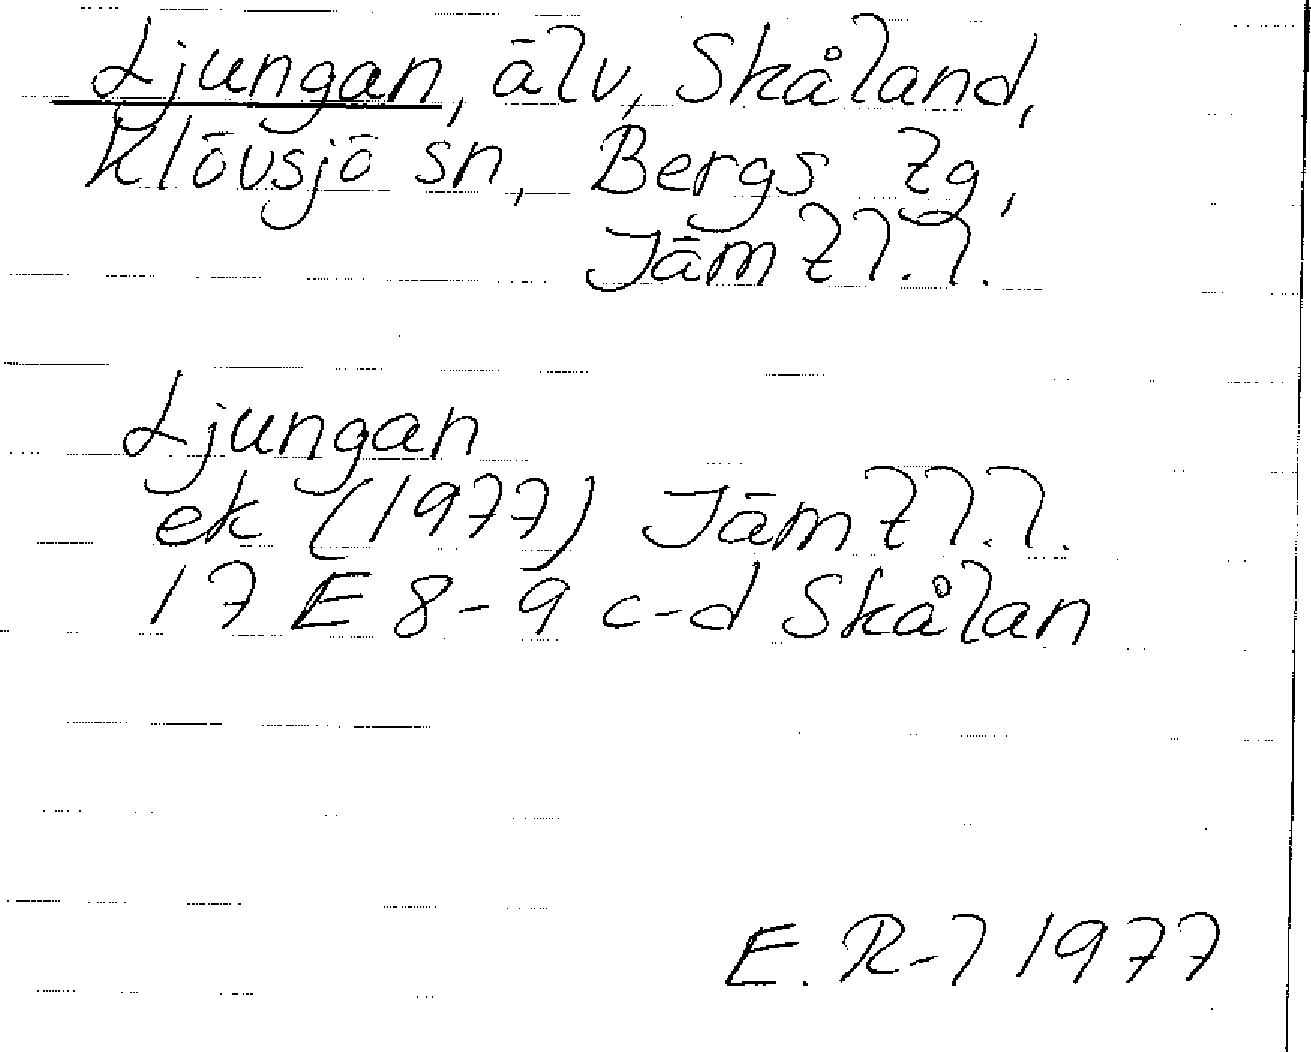 Ljungan, älv, Skåland,
Klövsjö sn, Bergs tg,
Jämtl.l.
Ljungan
ek (1977) Jämtl.l.
17 E 8-9 c-d Skålan
E. R-l 1977